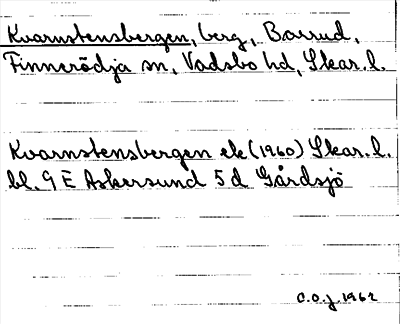 Kvarnstensbergen, berg, Barrud,
Finnerödja sn, Vadsbo hd, Skar. l.
Kvarnstensbergen ek (1960) Skar. l.
bl. 9 E Askersund 5 d Gårdsjö
C.O.J. 1962